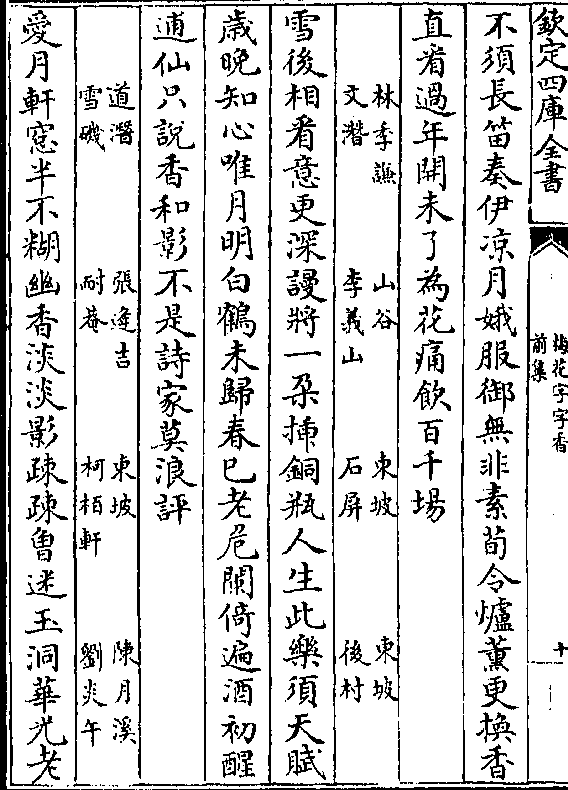 欽定四庫全書
梅花字字香前集
十
不須長笛奏伊凉月娥服御無非素荀令爐薰更換香
直看過年開未了為花痛飲百千塲
林季謙 山谷 東坡 東坡
文潛 李義山 石屏 後村
雪後相看意更深謾將一朶揷銅瓶人生此樂須天賦
歳晩知心唯月明白鶴未歸春已老危闌倚遍酒初醒
逋仙只說香和影不是詩家莫浪評
道潛 張逢吉 東坡 陳月溪
雪磯 耐菴 柯栢軒 劉炎午
愛月軒窓半不糊幽香淡淡影疎疎曾迷玉洞華光老